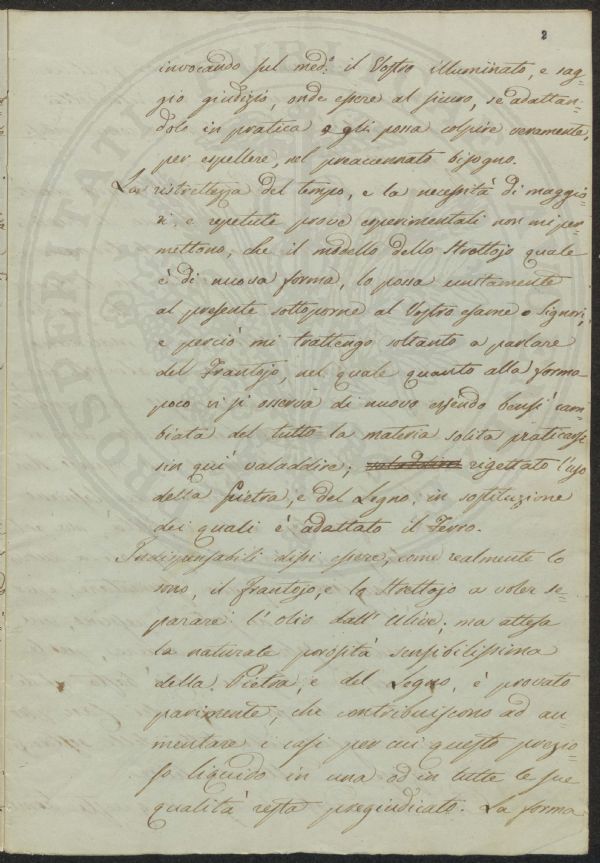 2
invocando sul med.º il Vostro illuminato, e sag=
gio giudizio, onde essere al sicuro, se adattan=
dolo in pratica egli possa colpire veramente,
per espellere, nel preaccennato bisogno.
La ristrettezza del tempo, e la necessità di maggio=
ri, e repetute prove esperimentali non mi per=
mettono, che il modello dello Strettojo quale
è di nuova forma, lo possa unitamente
al presente sottoporre al Vostro esame o Signori,
e perciò mi trattengo soltanto a parlare
del Frantojo, nel quale quanto alla forma
poco vi si osserva di nuovo essendo bensì cam=
biata del tutto la materia solita praticarsi
sin qui valaddire; rigettato l'uso
della Pietra, e del Legno, in sostituzione
dei quali è adattato il Ferro.
Indispensabili dissi essere, come realmente lo
sono, il Frantojo, e lo Strettojo a voler se=
parare l'olio dall'Ulive; ma attesa
la naturale porosità sensibilissima
della Pietra, e del Legno, è provato
parimente, che contribuiscono ad au=
mentare i casi per cui questo prezio=
so liquido in una od in tutte le sue
qualità resta pregiudicato. La forma
PROSPERITATI